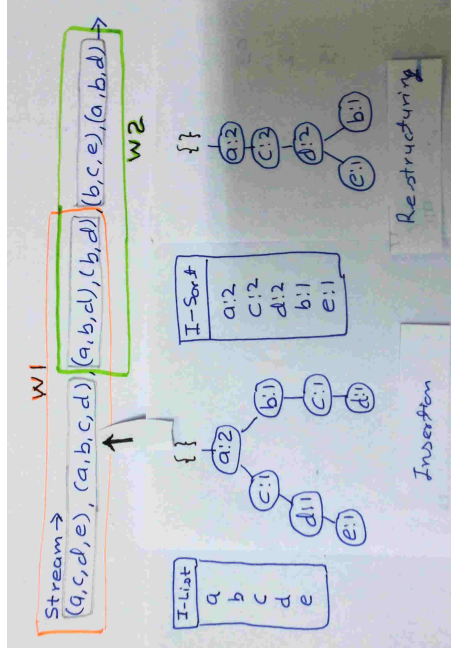 W1
Stream →
(a,c,d,e), (a,b,c,d), (a,b,d), (b,d), (b,c,e), (a,b,d) →
W2
I-List
a
b
c
d
e
{ }
a:2
c:1
b:1
d:1
c:1
e:1
d:1
Insertion
I-Sort
a:2
c:2
d:2
b:1
e:1
{ }
a:2
c:2
d:2
e:1
b:1
Restructuring